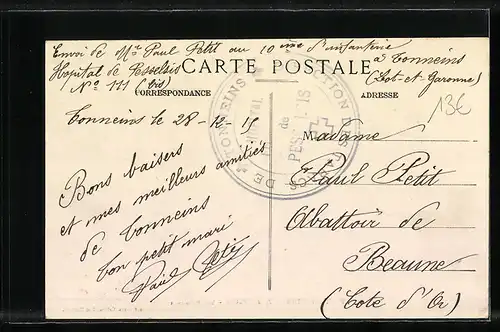 Envoi de Mr Paul Petit au 10ème d'infanterie
Hopital de Pesselsis à Tonneins
No 111 (bis) (Lot-et-Garonne)
CARTE POSTALE
CORRESPONDANCE
ADRESSE
13€
Tonneins le 28-12-15
Bons baisers
et mes meilleurs amitiés
de Tonneins
ton petit mari
Paul Petit
Madame
Paul Petit
Abattoir de
Beaune
(Cote d'Or)
TONNEINS
de
DE